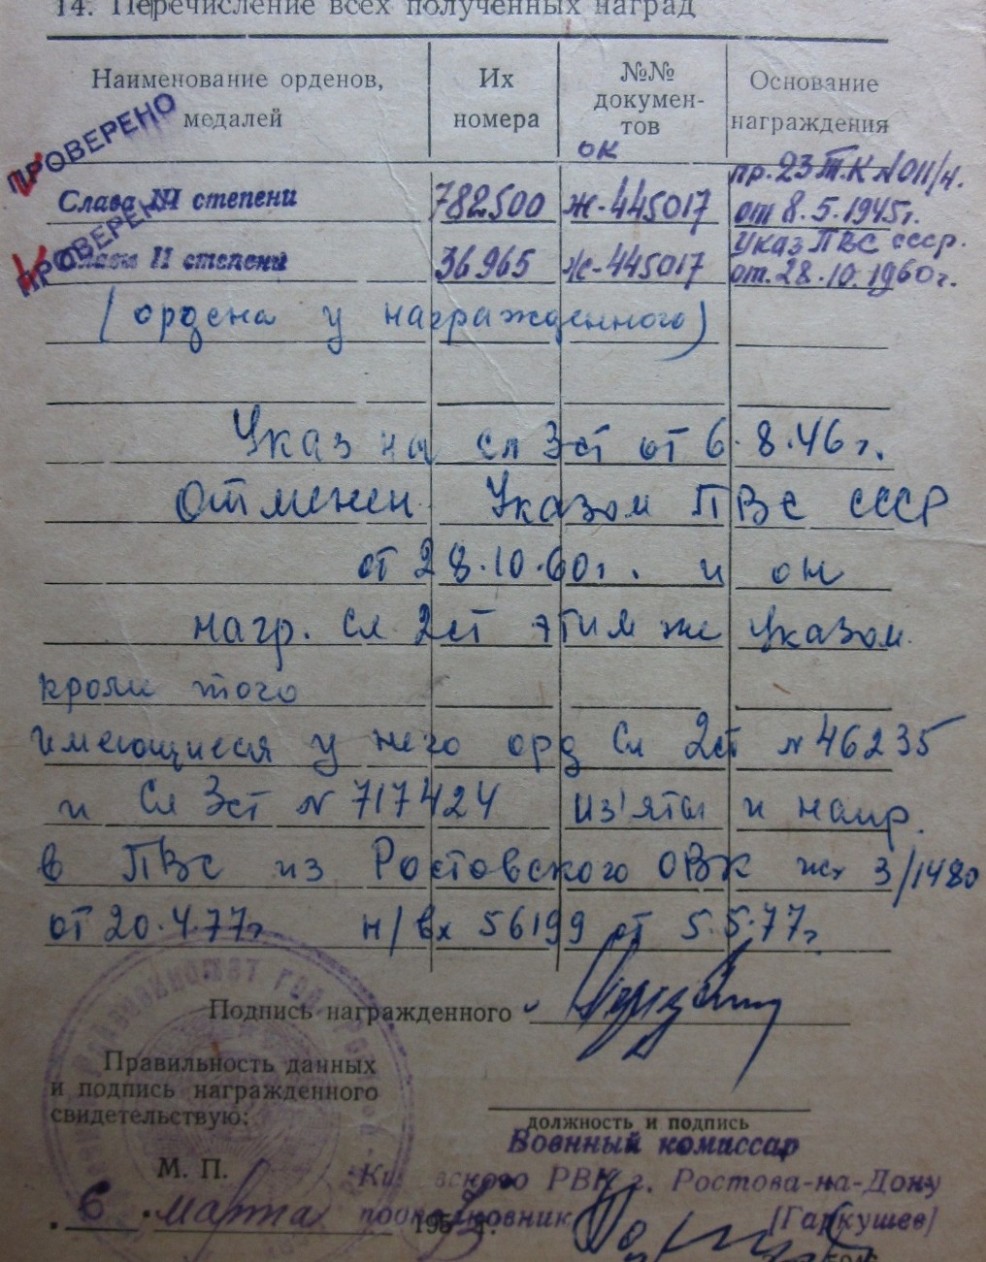 14. Перечисление всех полученных наград
Наименование орденов, медалей
Их номера
№№ документов
Основание награждения
ОК
ПРОВЕРЕНО
Слава III степени 782500 Ж-445017 пр. 23 Т.К №011/н. от 8.5.1945г.
ПРОВЕРЕНО
Слава II степени 36965 Ж-445017 Указ ПВС ссср. от. 28.10.1960г.
(ордена у награжденного)
Указ на сл 3 ст от 6.8.46 г.
Отменен Указом ПВС СССР
от 28.10.60г. и он
нагр. Сл 2ст этим же Указом.
кроме того
имеющиеся у него орд Сл 2ст №46235
и Сл 3ст №717424 из'яты и напр.
в ПВС из Ростовского ОВК 3/1480
от 20.4.77г н/вх 56199 от 5.5.77г
Подпись награжденного
Правильность данных
и подпись награжденного
свидетельствую:
должность и подпись
Военный комиссар
РВК г. Ростова-на-Дону
М. П.
6 марта 196 г.
подполковник [Гаркушев]